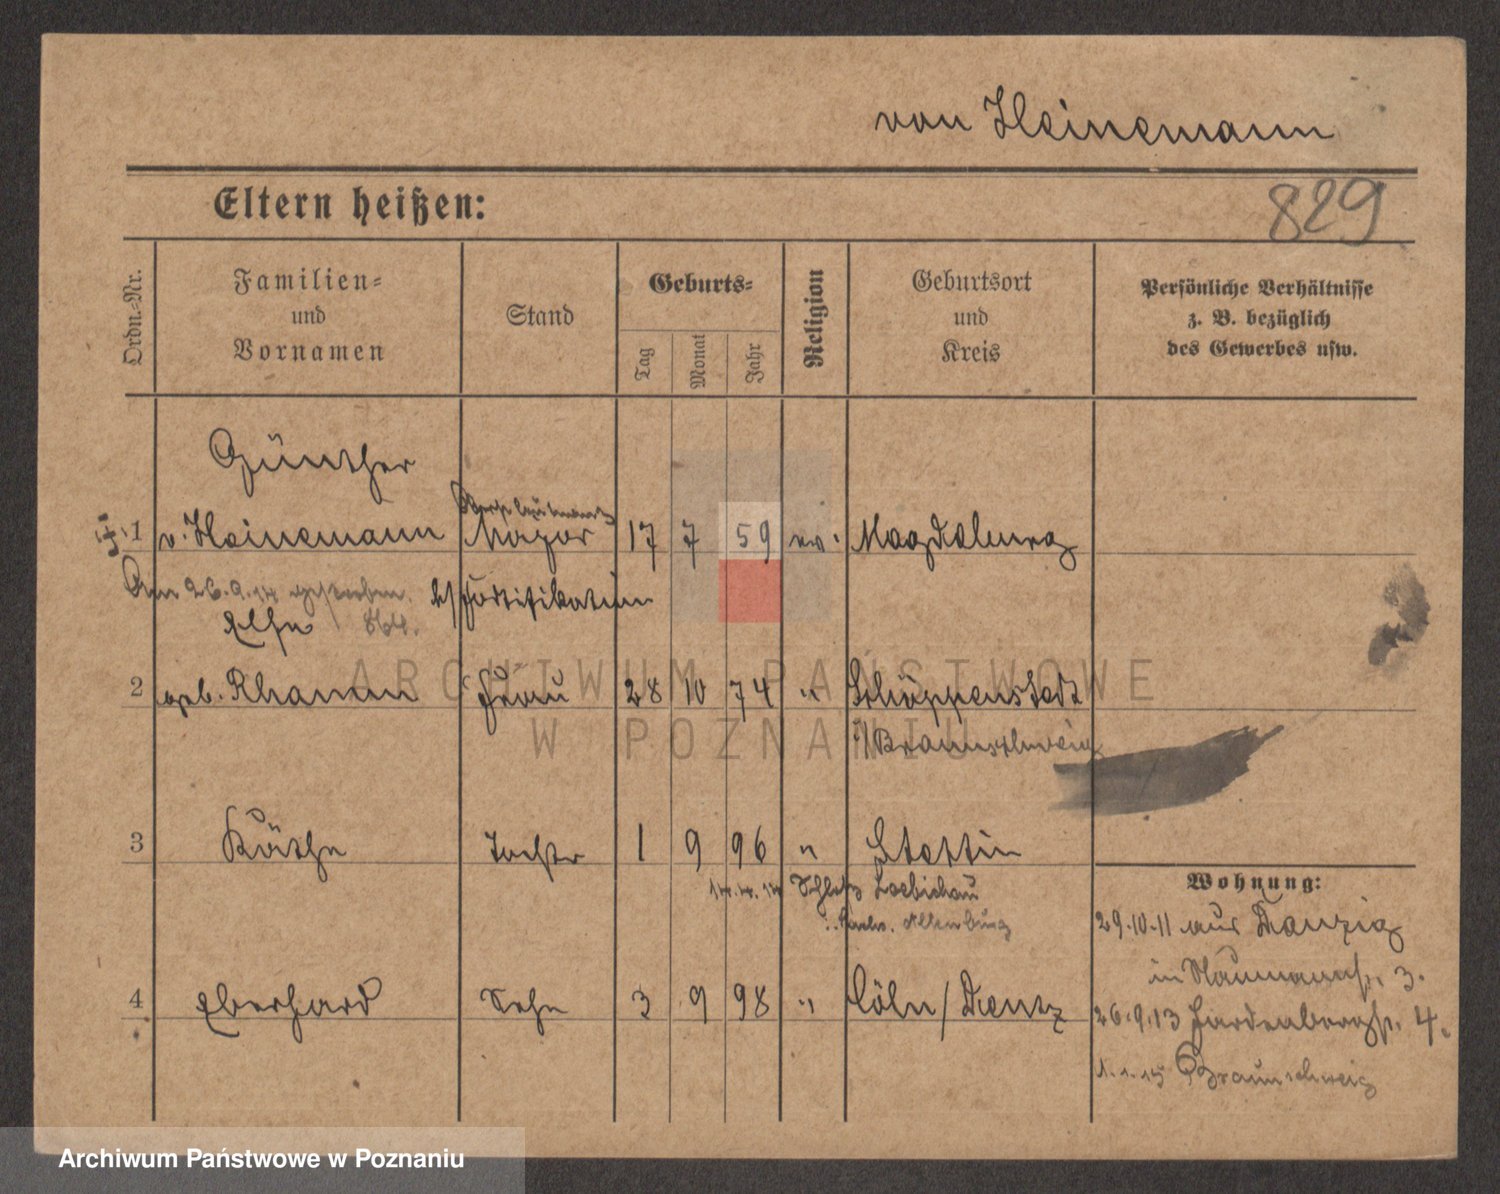 von Heinemann
Eltern heißen:
829
Ordn.-Nr.
Familien-
und
Vornamen
Stand
Geburts-
Tag
Monat
Jahr
Religion
Geburtsort
und
Kreis
Persönliche Verhältnisse
z. B. bezüglich
des Gewerbes usw.
Günther
Oberstleutnant
1 v. Heinemann Major 17 7 59 ev. Magdeburg
Am 26.9.14 gestorben. d/Fortifikation
Else 864.
2 geb. Rhamm Frau 28 10 74 " Schöppenstedt
i/Braunschweig
3 Käthe Tochter 1 9 96 " Stettin
Loebichau
Altenburg
Wohnung:
29.10.11 aus Danzig
in Naumannstr. 3.
4 Eberhard Sohn 3 9 98 " Cöln/Deutz
26.9.13 Hardenbergstr. 4.
1.1.15 Braunschweig
ARCHIWUM PAŃSTWOWE
W POZNANIU
Archiwum Państwowe w Poznaniu